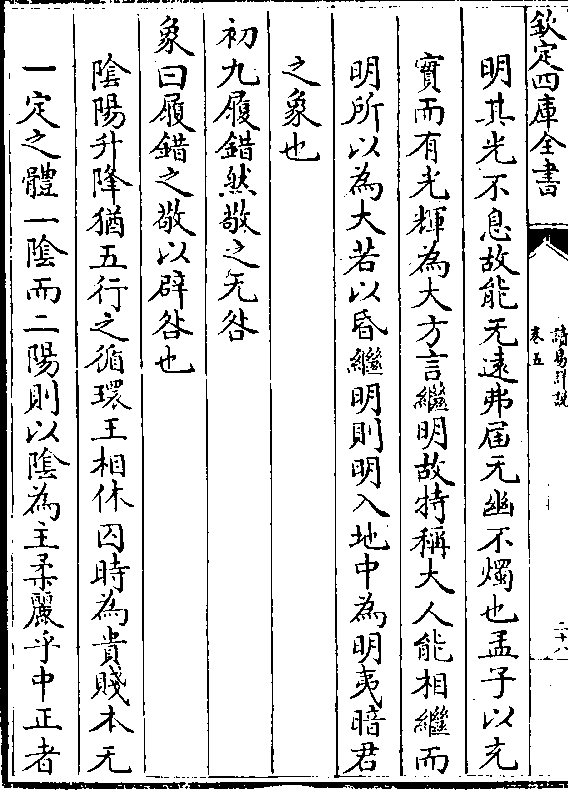 欽定四庫全書
讀易詳說
卷五
二十八
明其光不息故能无遠弗屆无幽不燭也孟子以充
實而有光輝為大方言繼明故持稱大人能相繼而
明所以為大若以昏繼明則明入地中為明夷暗君
之象也
初九履錯然敬之无咎
象曰履錯之敬以辟咎也
陰陽升降猶五行之循環王相休囚時為貴賤本无
一定之體一陰而二陽則以陰為主柔麗乎中正者